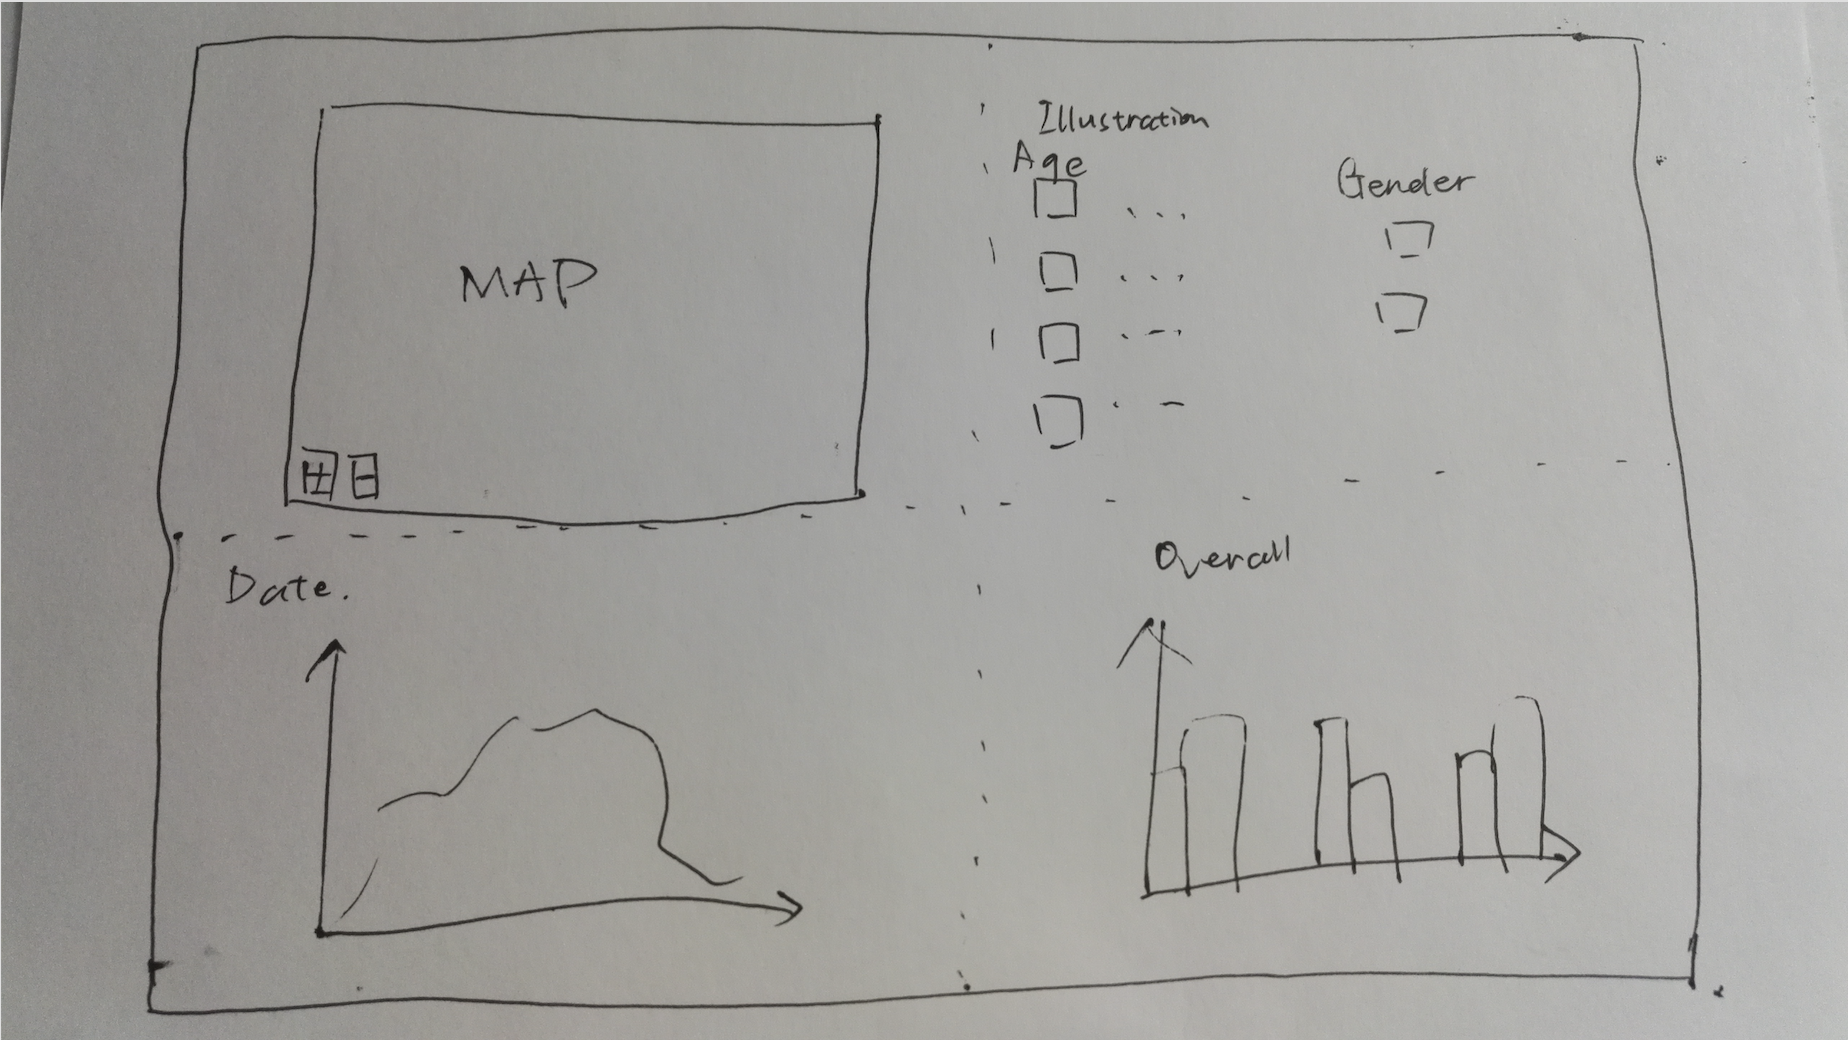 Illustration
Age
Gender
MAP
Date.
Overall